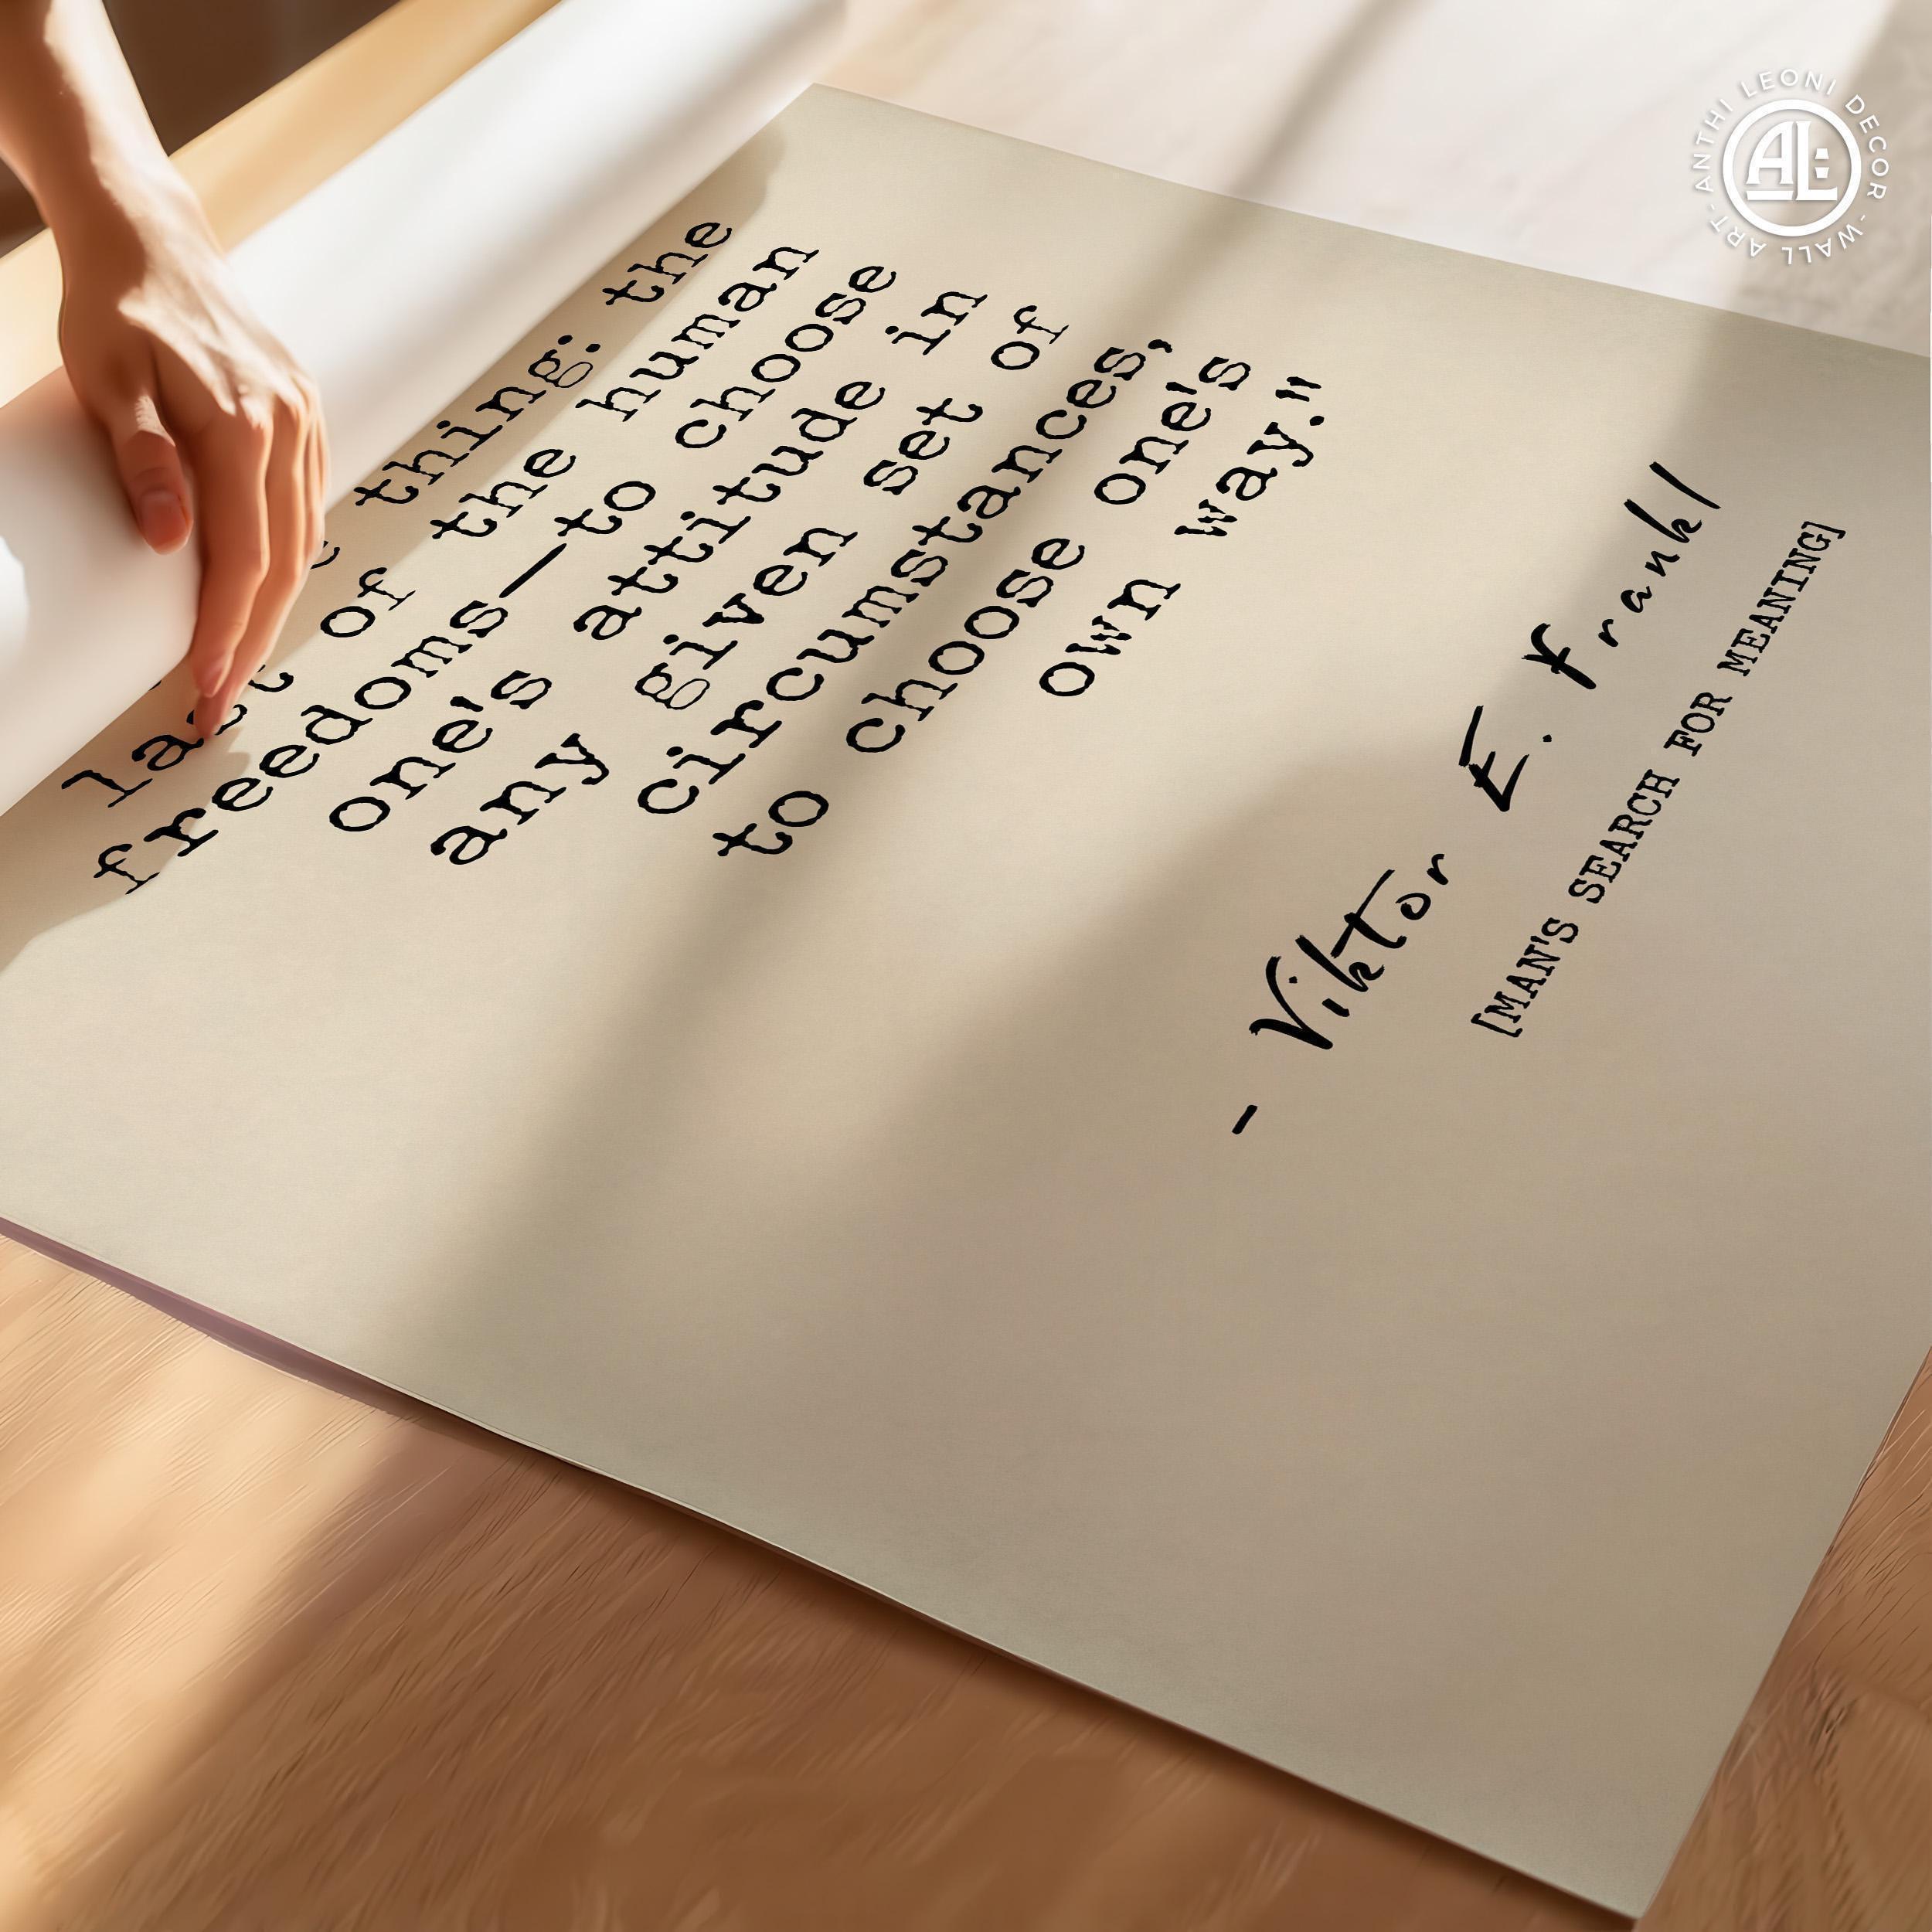 thing: the
last of the human
freedoms—to choose
one's attitude in
any given set of
circumstances,
to choose one's
own way."
- Viktor E. Frankl
[MAN'S SEARCH FOR MEANING]
ANTHI LEONI DECOR - WALL ART -
AL